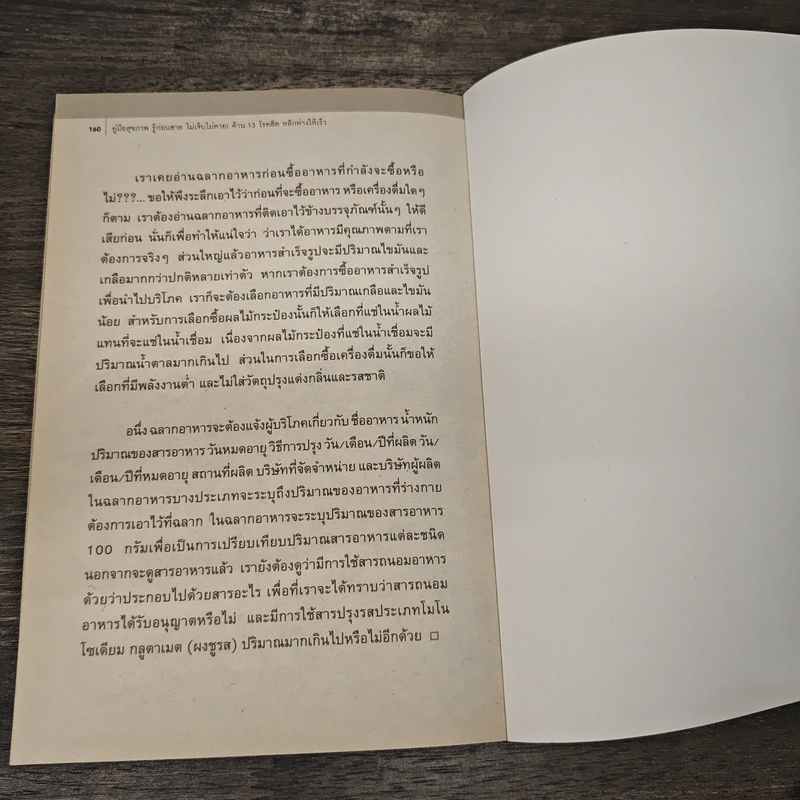 160 คู่มือสุขภาพ รู้ก่อนสาย ไม่เจ็บไม่ตาย! ต้าน 13 โรคฮิต หลีกห่างให้เร็ว
เราเคยอ่านฉลากอาหารก่อนซื้ออาหารที่กำลังจะซื้อหรือ
ไม่???... ขอให้พึงระลึกเอาไว้ว่าก่อนที่จะซื้ออาหาร หรือเครื่องดื่มใดๆ
ก็ตาม เราต้องอ่านฉลากอาหารที่ติดเอาไว้ข้างบรรจุภัณฑ์นั้นๆ ให้ดี
เสียก่อน นั่นก็เพื่อทำให้แน่ใจว่า ว่าเราได้อาหารมีคุณภาพตามที่เรา
ต้องการจริงๆ ส่วนใหญ่แล้วอาหารสำเร็จรูปจะมีปริมาณไขมันและ
เกลือมากกว่าปกติหลายเท่าตัว หากเราต้องการซื้ออาหารสำเร็จรูป
เพื่อนำไปบริโภค เราก็จะต้องเลือกอาหารที่มีปริมาณเกลือและไขมัน
น้อย สำหรับการเลือกซื้อผลไม้กระป๋องนั้นก็ให้เลือกที่แช่ในน้ำผลไม้
แทนที่จะแช่ในน้ำเชื่อม เนื่องจากผลไม้กระป๋องที่แช่ในน้ำเชื่อมจะมี
ปริมาณน้ำตาลมากเกินไป ส่วนในการเลือกซื้อเครื่องดื่มนั้นก็ขอให้
เลือกที่มีพลังงานต่ำ และไม่ใส่วัตถุปรุงแต่งกลิ่นและรสชาติ
อนึ่ง ฉลากอาหารจะต้องแจ้งผู้บริโภคเกี่ยวกับ ชื่ออาหาร น้ำหนัก
ปริมาณของสารอาหาร วันหมดอายุ วิธีการปรุง วัน/เดือน/ปีที่ผลิต วัน/
เดือน/ปีที่หมดอายุ สถานที่ผลิต บริษัทที่จัดจำหน่าย และบริษัทผู้ผลิต
ในฉลากอาหารบางประเภทจะระบุถึงปริมาณของอาหารที่ร่างกาย
ต้องการเอาไว้ที่ฉลาก ในฉลากอาหารจะระบุปริมาณของสารอาหาร
100 กรัมเพื่อเป็นการเปรียบเทียบปริมาณสารอาหารแต่ละชนิด
นอกจากจะดูสารอาหารแล้ว เรายังต้องดูว่ามีการใช้สารถนอมอาหาร
ด้วยว่าประกอบไปด้วยสารอะไร เพื่อที่เราจะได้ทราบว่าสารถนอม
อาหารได้รับอนุญาตหรือไม่ และมีการใช้สารปรุงรสประเภทโมโน
โซเดียม กลูตาเมต (ผงชูรส) ปริมาณมากเกินไปหรือไม่อีกด้วย □